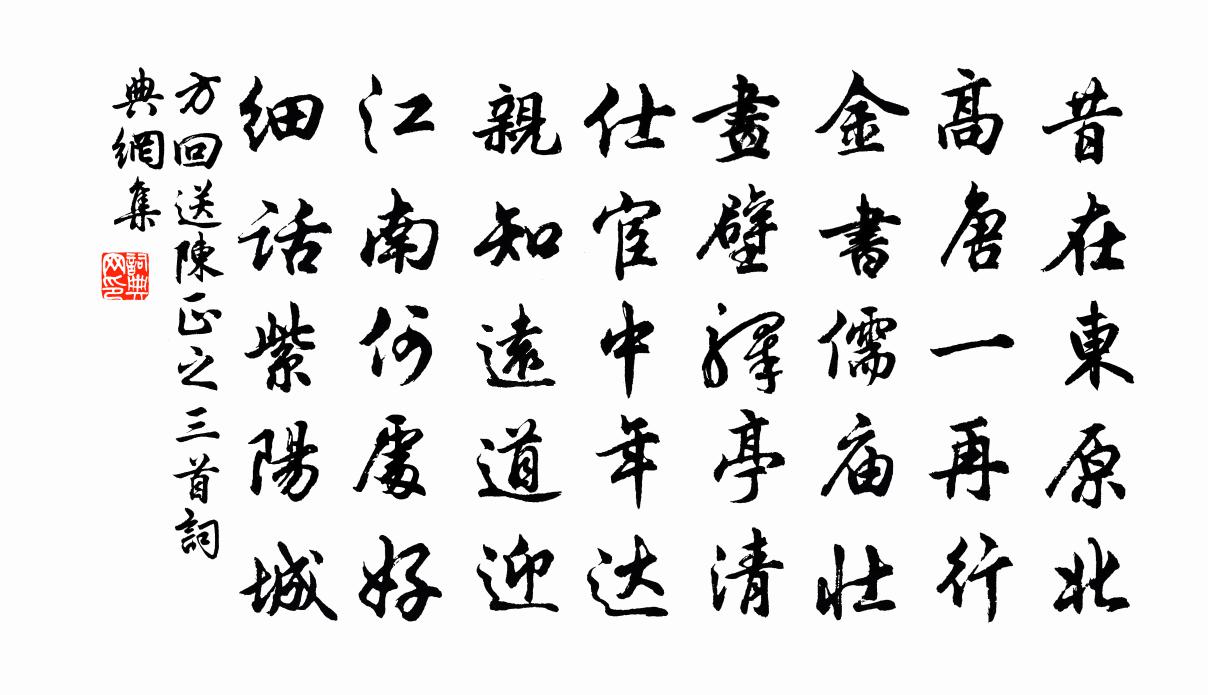 昔在東原北
高唐一再行
金書儒庙壮
畫壁驛亭清
仕宦中年达
親知遠道迎
江南何處好
细话紫陽城
方回送陳正之三首詞
典網集
詞典
网印